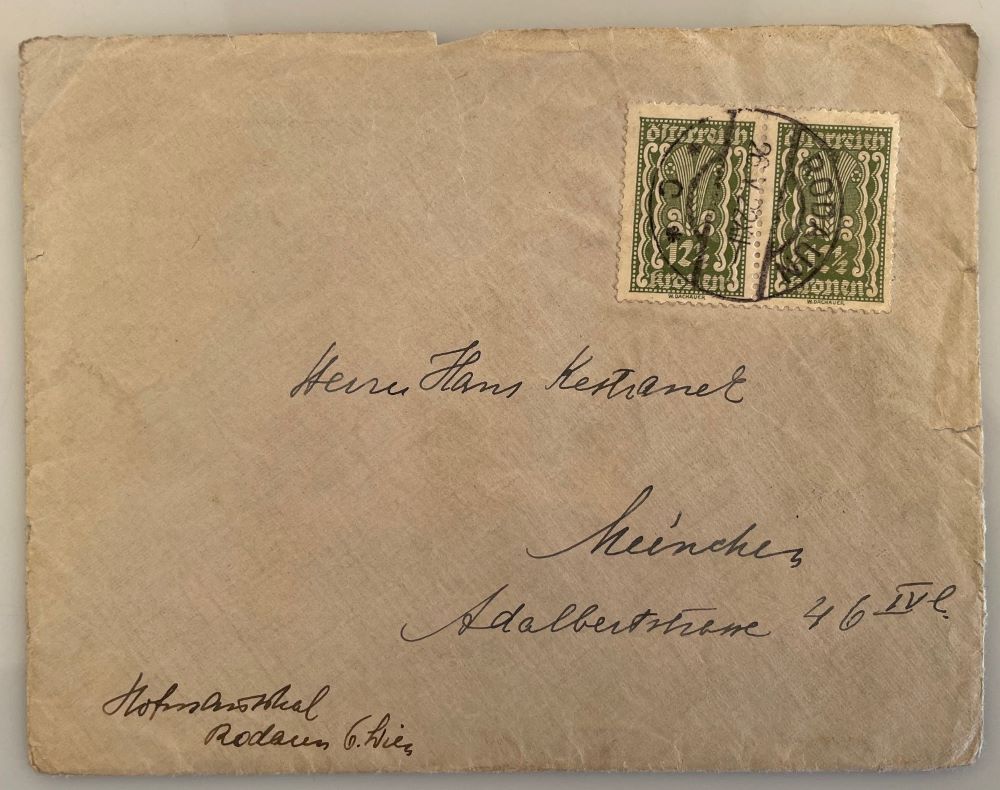 Österreich Österreich
12½ 12½
Kronen Kronen
W. DACHAUER W. DACHAUER
RODAUN
26 V
* C *
Herrn Hans Kestranek
München
Adalbertstrasse 46 IVl.
Hofmannsthal
Rodaun b. Wien